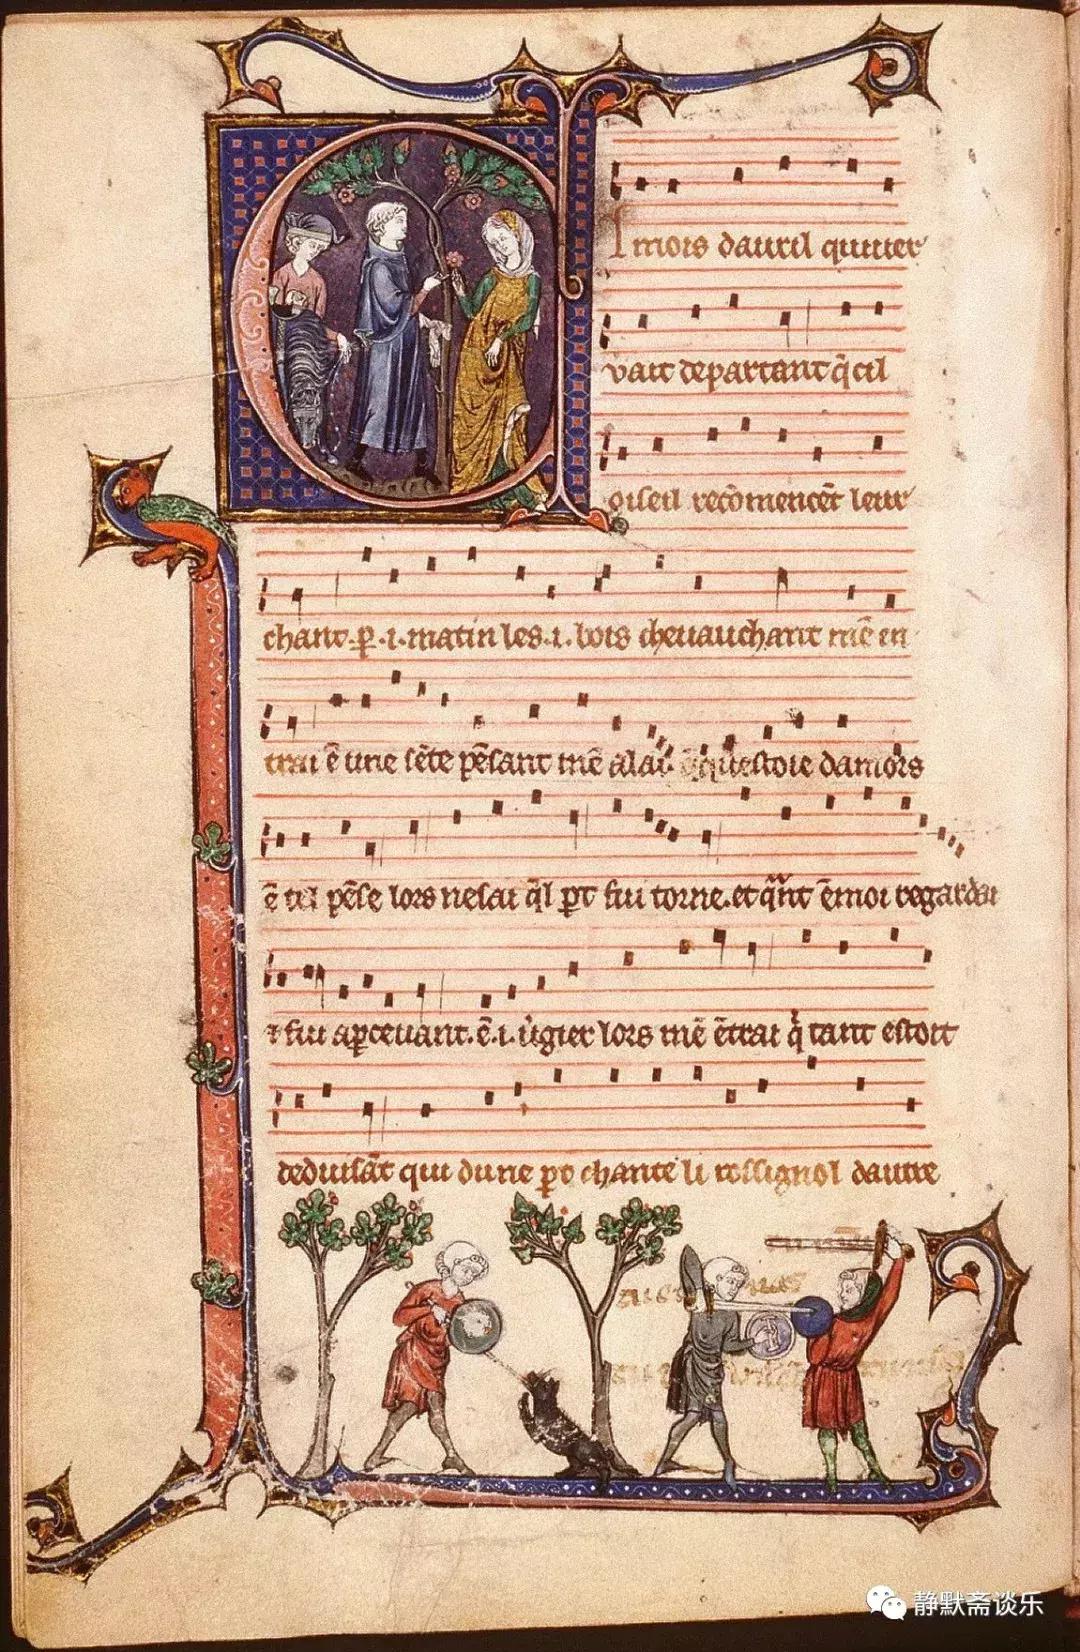 El mois dauril qui uer
vait departant q̃ cil
oiseil recõmencẽt leur
chant. p̲ .i. matin les .i. bois cheuauchant mẽ en
trai ẽ une sẽte pẽsant mẽ alai questoie damors
ẽ tel pẽse lors ne sai q̃l part fui torne. et q̃nt ẽ moi regardai
⁊ fui apceuant. ẽ .i. ũgier lors mẽ ẽtrai q̃ tant estoit
deduisãt qui dune p̲t chante li rossignol dautre
静默斋谈乐